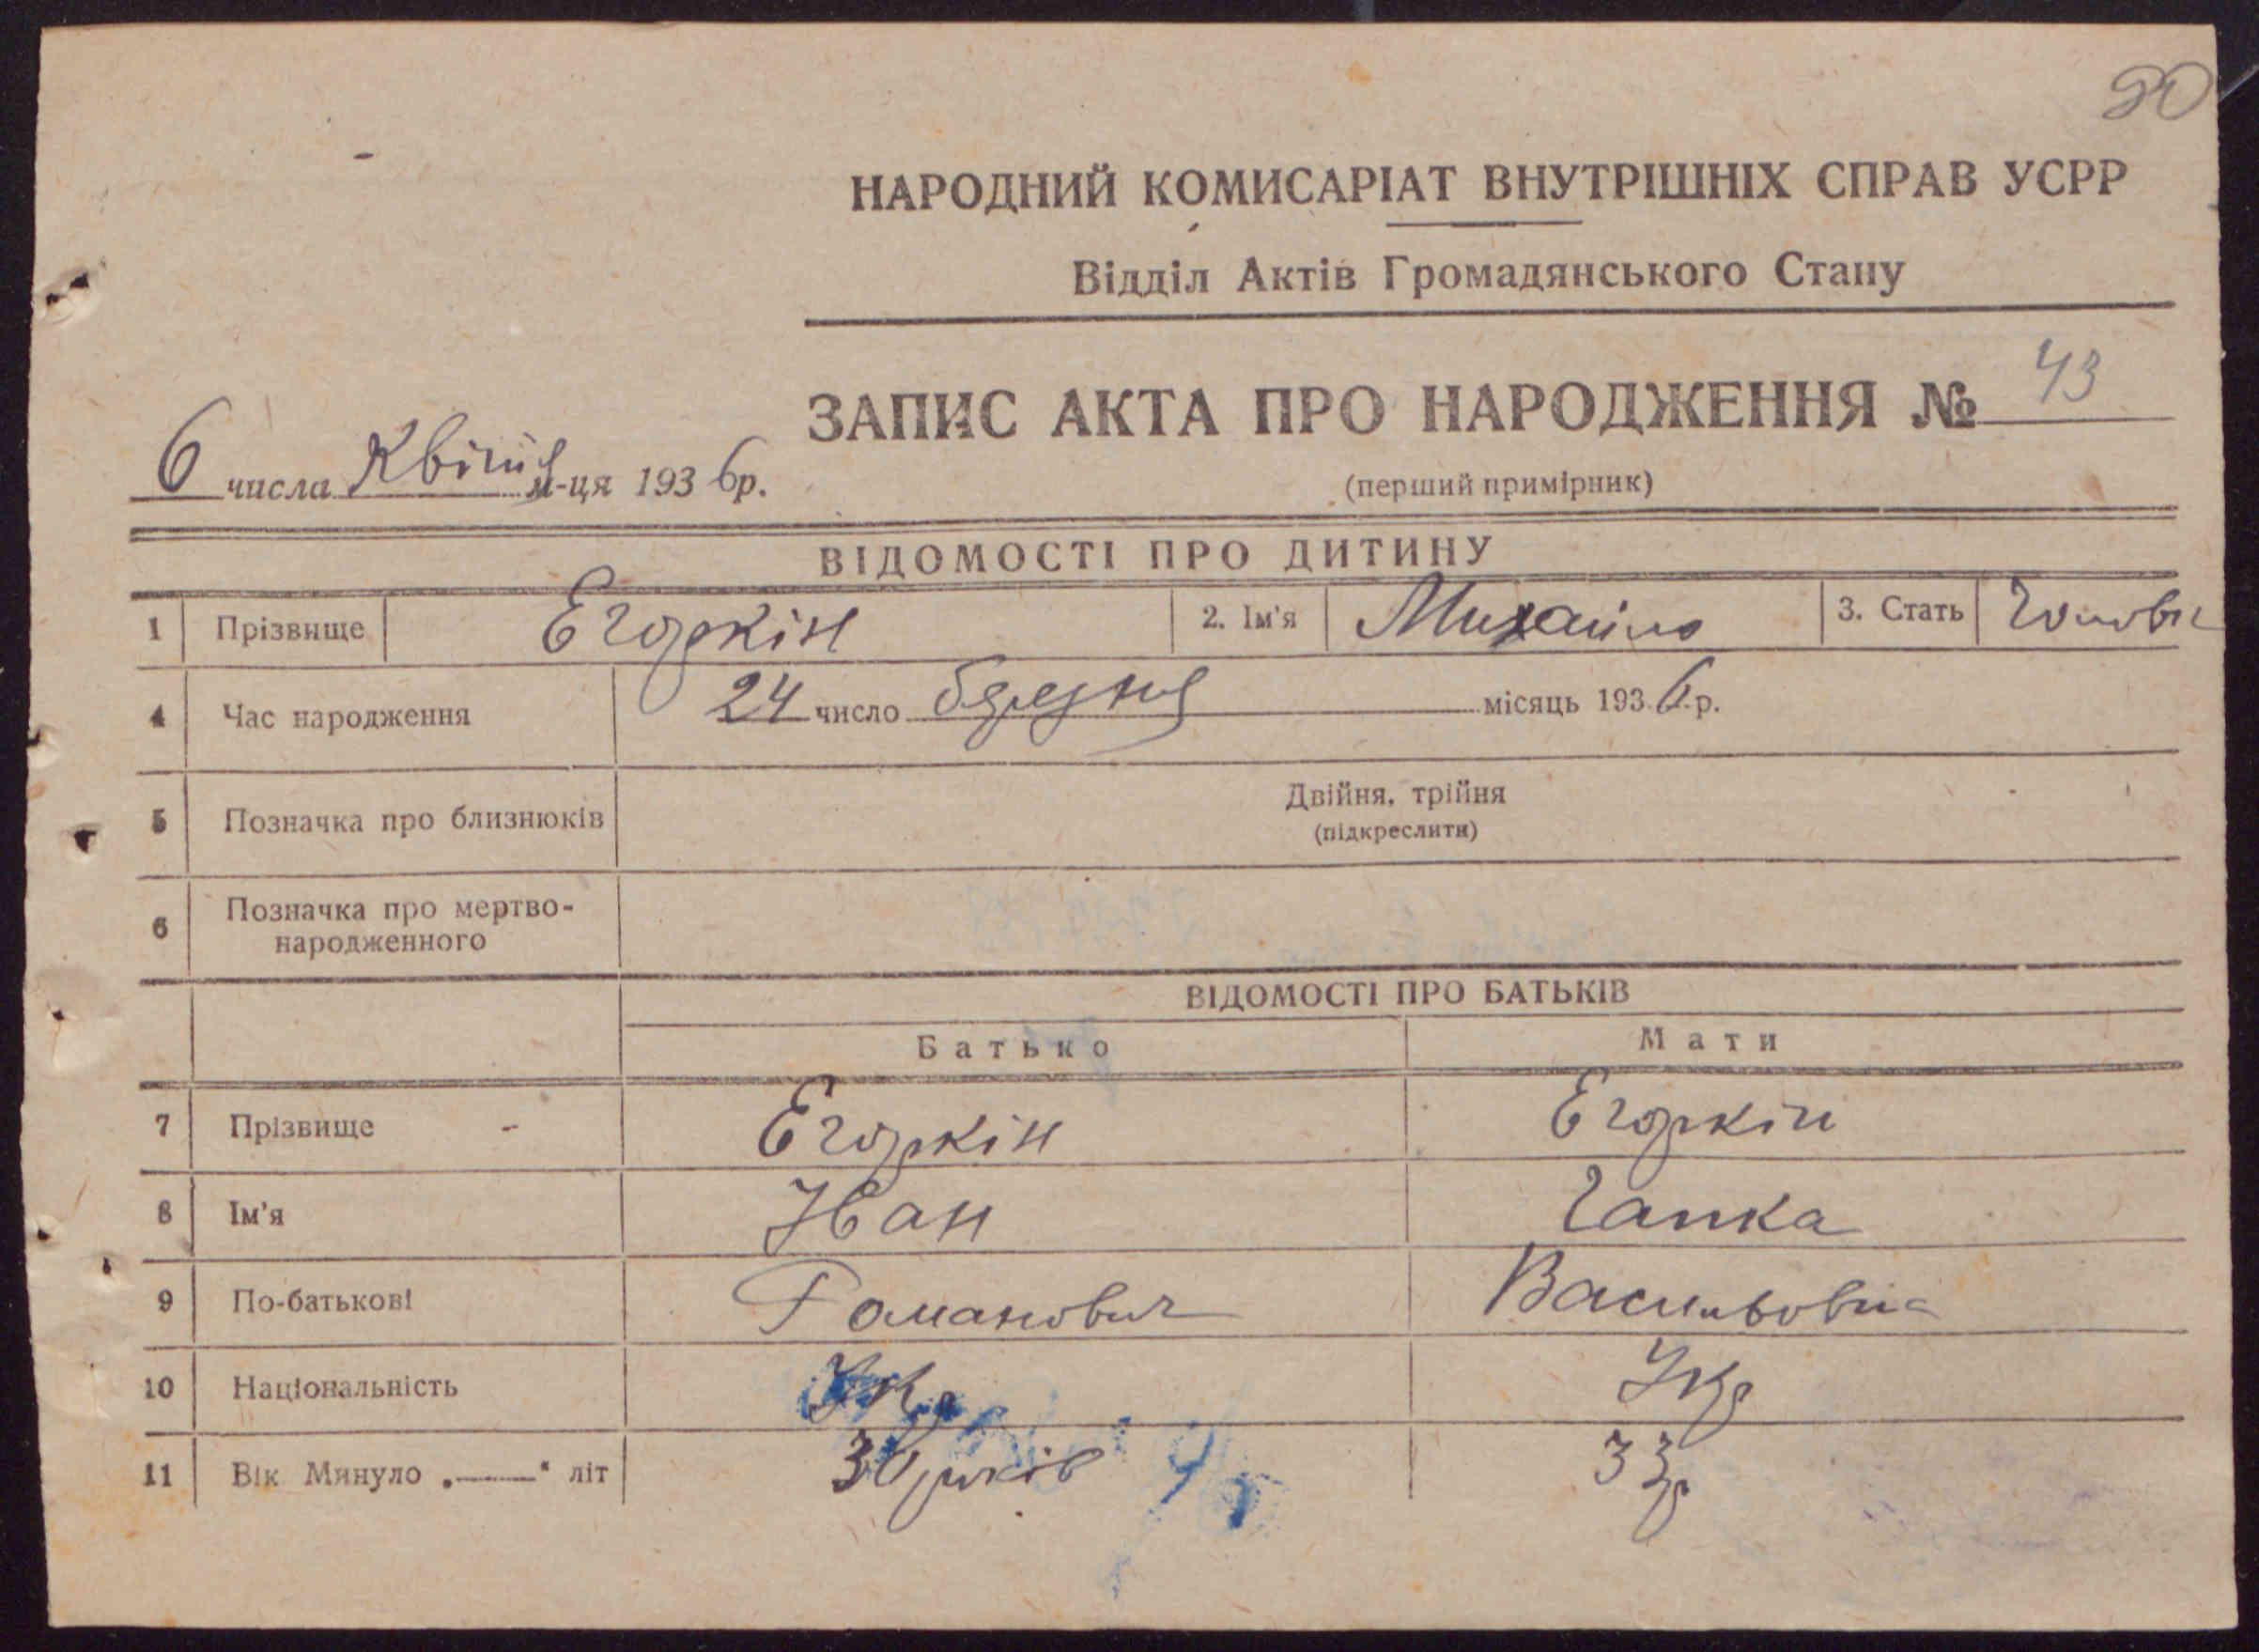 20
НАРОДНИЙ КОМИСАРІАТ ВНУТРІШНІХ СПРАВ УСРР
Відділ Актів Громадянського Стану
ЗАПИС АКТА ПРО НАРОДЖЕННЯ № 43
6 числа Квітня м-ця 1936 р.
(перший примірник)
ВІДОМОСТІ ПРО ДИТИНУ
1 Прізвище Егоркін 2. Ім'я Михайло 3. Стать Чоловіч
4 Час народження 24 число березня місяць 1936 р.
5 Позначка про близнюків Двійня, трійня
(підкреслити)
6 Позначка про мертво-
народженного
ВІДОМОСТІ ПРО БАТЬКІВ
Батько Мати
7 Прізвище Егоркін Егоркін
8 Ім'я Іван Гапка
9 По-батькові Романович Васильовна
10 Національність Укр Укр
11 Вік Минуло „——“ літ 30 років 33 р